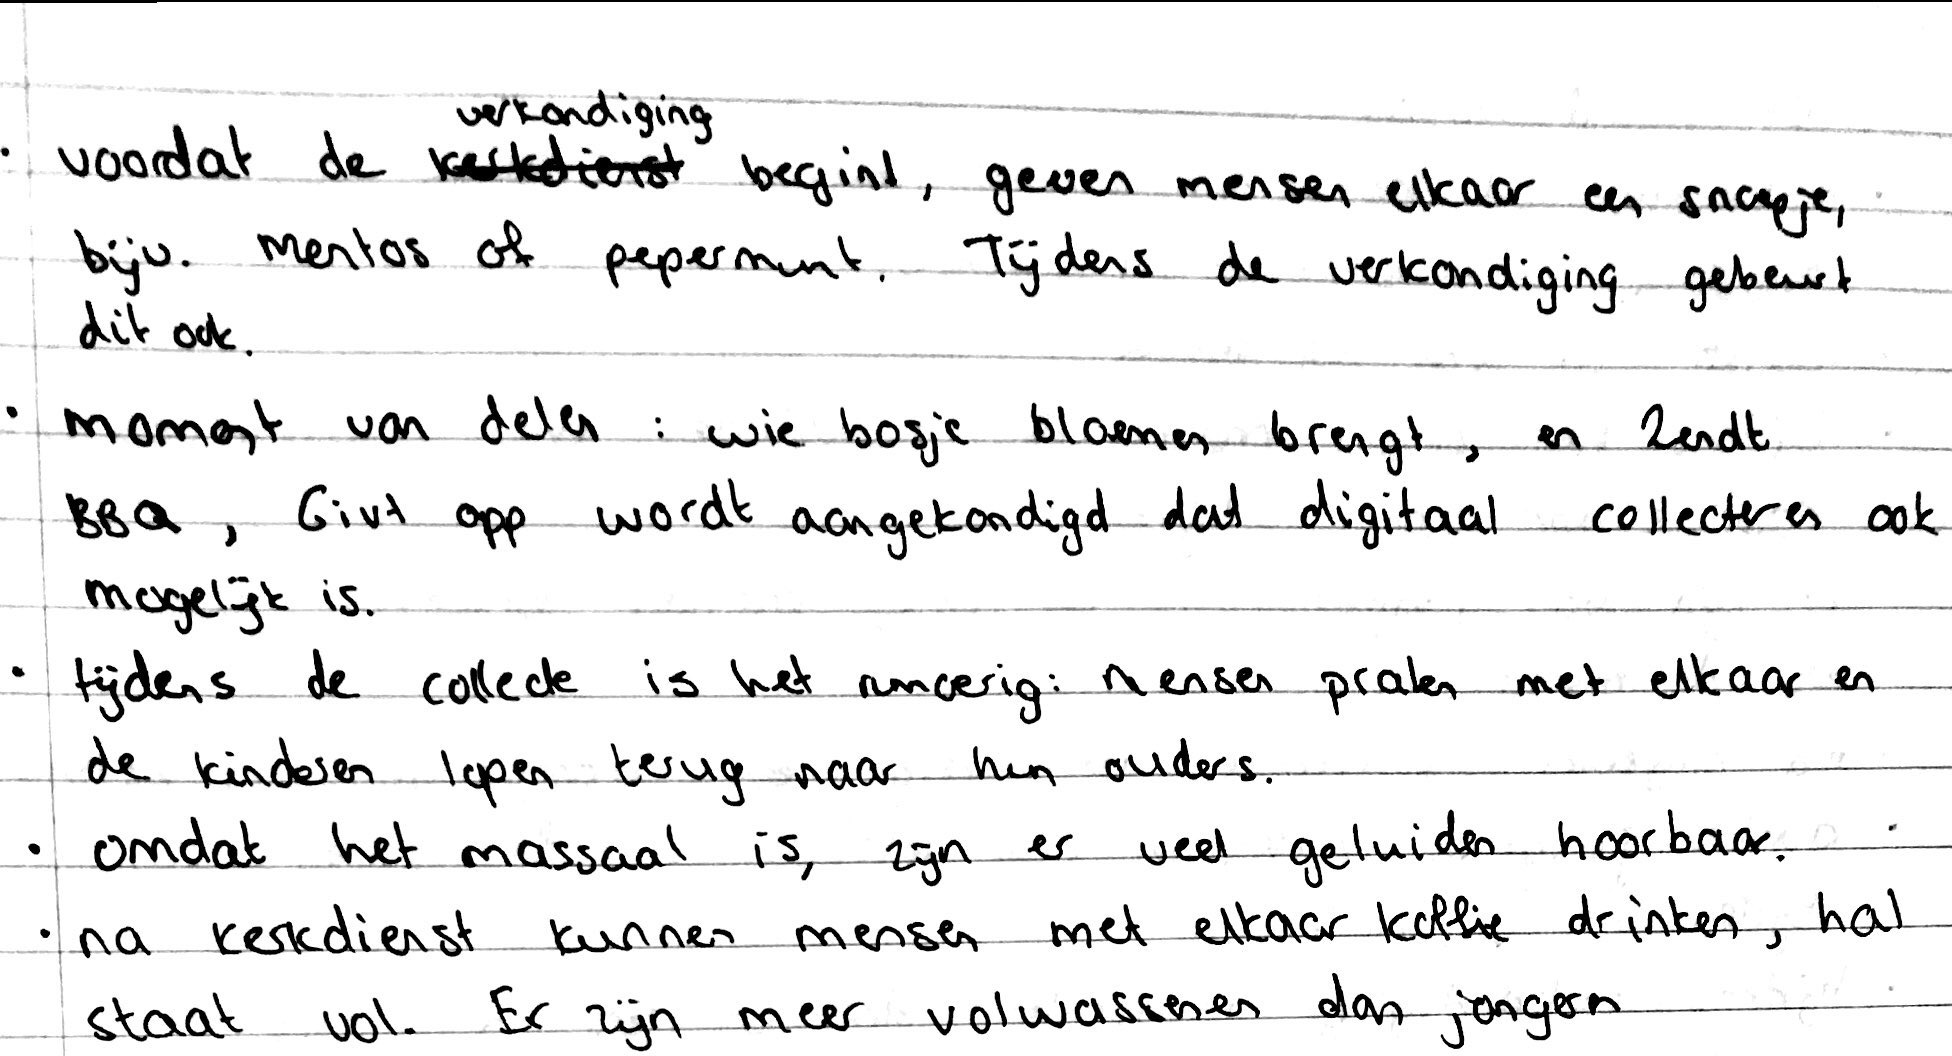 verkondiging
· voordat de kerkdienst begint, geven mensen elkaar een snoepje,
bijv. Mentos of pepermunt. Tijdens de verkondiging gebeurt
dit ook.
· moment van delen : wie bosje bloemen brengt, en Zendt
BBQ, Givt app wordt aangekondigd dat digitaal collecteren ook
mogelijk is.
· tijdens de collecte is het rumoerig: mensen praten met elkaar en
de kinderen lopen terug naar hun ouders.
· omdat het massaal is, zijn er veel geluiden hoorbaar.
· na kerkdienst kunnen mensen met elkaar koffie drinken, hal
staat vol. Er zijn meer volwassenen dan jongeren